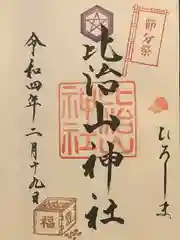 節分祭
比治山神社
比治山
神社
ひろしま
令和四年二月十九日
福